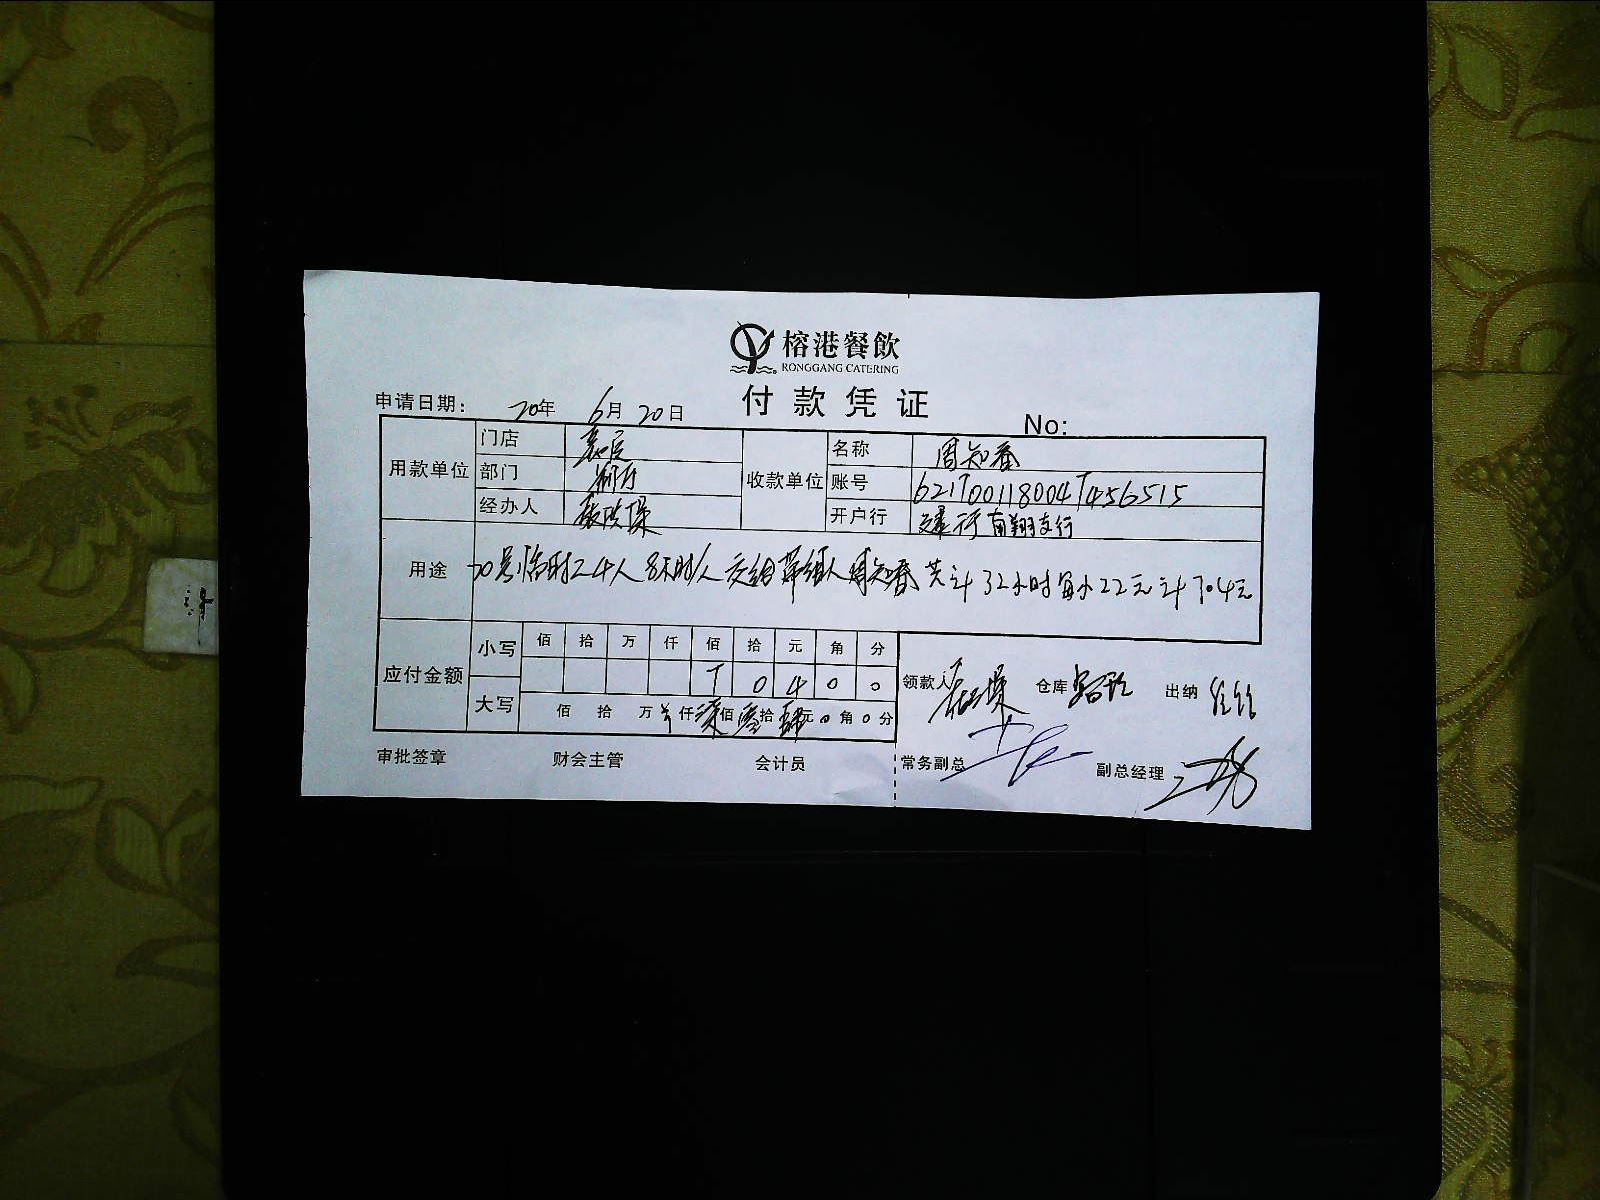 榕港餐飲
RONGGANG CATERING
付款凭证
申请日期: 20年 6月 20日
No:
用款单位 门店 嘉定
部门 前厅
经办人
收款单位 名称 周知春
账号 6217001180047456515
开户行 建行南翔支行
用途 20号临时工4人 8小时/人 交给 周知春 共计32小时 每小22元 计704元
应付金额 小写 佰 拾 万 仟 佰 拾 元 角 分
7 0 4 0 0
大写 佰 拾 万 仟 柒 佰 零 拾 肆 元 0 角 0 分
领款人 仓库 出纳
审批签章 财会主管 会计员 常务副总 副总经理